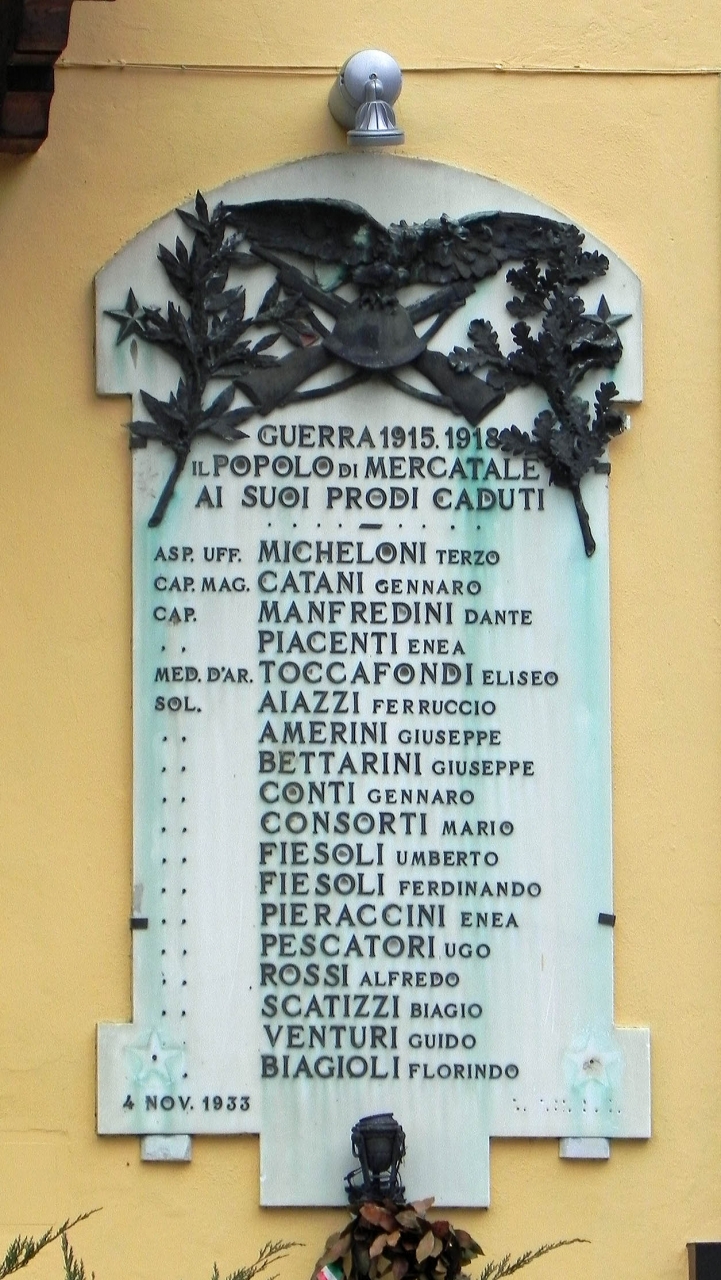 GUERRA 1915. 1918
IL POPOLO DI MERCATALE
AI SUOI PRODI CADUTI
ASP. UFF. MICHELONI TERZO
CAP. MAG. CATANI GENNARO
CAP. MANFREDINI DANTE
. . PIACENTI ENEA
MED. D'AR. TOCCAFONDI ELISEO
SOL. AIAZZI FERRUCCIO
. . AMERINI GIUSEPPE
. . BETTARINI GIUSEPPE
. . CONTI GENNARO
. . CONSORTI MARIO
. . FIESOLI UMBERTO
. . FIESOLI FERDINANDO
. . PIERACCINI ENEA
. . PESCATORI UGO
. . ROSSI ALFREDO
. . SCATIZZI BIAGIO
. VENTURI GUIDO
. BIAGIOLI FLORINDO
4 NOV. 1933